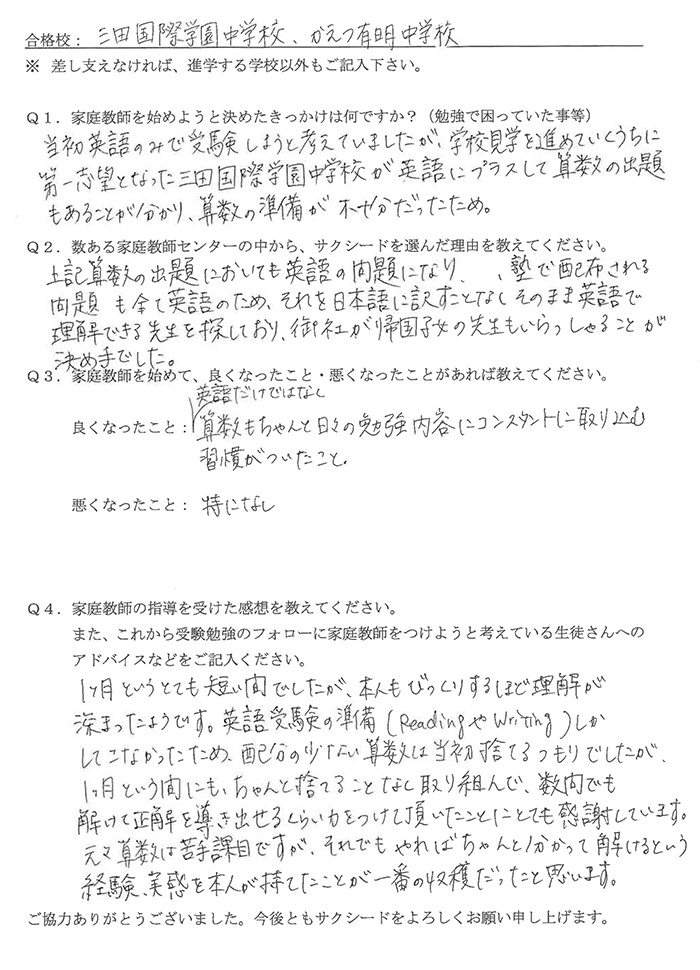 合格校： 三田国際学園中学校、かえつ有明中学校
※ 差し支えなければ、進学する学校以外もご記入下さい。
Ｑ１．家庭教師を始めようと決めたきっかけは何ですか？（勉強で困っていた事等）
当初英語のみで受験しようと考えていましたが、学校見学を進めていくうちに
第一志望となった三田国際学園中学校が英語にプラスして算数の出題
もあることが分かり、算数の準備が不十分だったため。
Ｑ２．数ある家庭教師センターの中から、サクシードを選んだ理由を教えてください。
上記算数の出題においても英語の問題になり、、塾で配布される
問題も全て英語のため、それを日本語に訳すことなしそのまま英語で
理解できる先生を探しており、御社が帰国子女の先生もいらっしゃることが
決め手でした。
Ｑ３．家庭教師を始めて、良くなったこと・悪くなったことがあれば教えてください。
英語だけではなし
良くなったこと： 算数もちゃんと日々の勉強内容にコンスタントに取り込む
習慣がついたこと。
悪くなったこと： 特になし
Ｑ４．家庭教師の指導を受けた感想を教えてください。
また、これから受験勉強のフォローに家庭教師をつけようと考えている生徒さんへの
アドバイスなどをご記入ください。
1ヶ月というとても短い間でしたが、本人もびっくりするほど理解が
深まったようです。英語受験の準備（ReadingやWriting）しか
してこなかったため、配分の少ない算数は当初捨てるつもりでしたが、
1ヶ月という間にも、ちゃんと捨てることなし取り組んで、数問でも
解けて正解を導き出せるくらい力をつけて頂いたことにとても感謝しています。
元々算数は苦手課目ですが、それでもやればちゃんと分かって解けるという
経験、実感を本人が持てたことが一番の収穫だったと思います。
ご協力ありがとうございました。今後ともサクシードをよろしくお願い申し上げます。